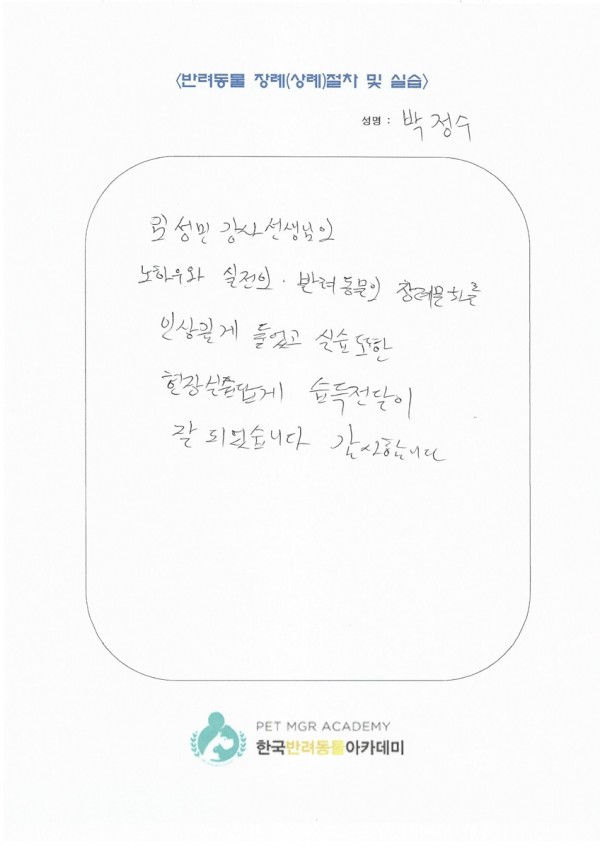 <반려동물 장례(상례)절차 및 실습>
성명 : 박정수
성민 강사선생님의
노하우와 실전의 · 반려동물의 장례문화를
인상깊게 들었고 실습또한
현장실습답게 습득전달이
잘 되었습니다 감사합니다
PET MGR ACADEMY
한국반려동물아카데미